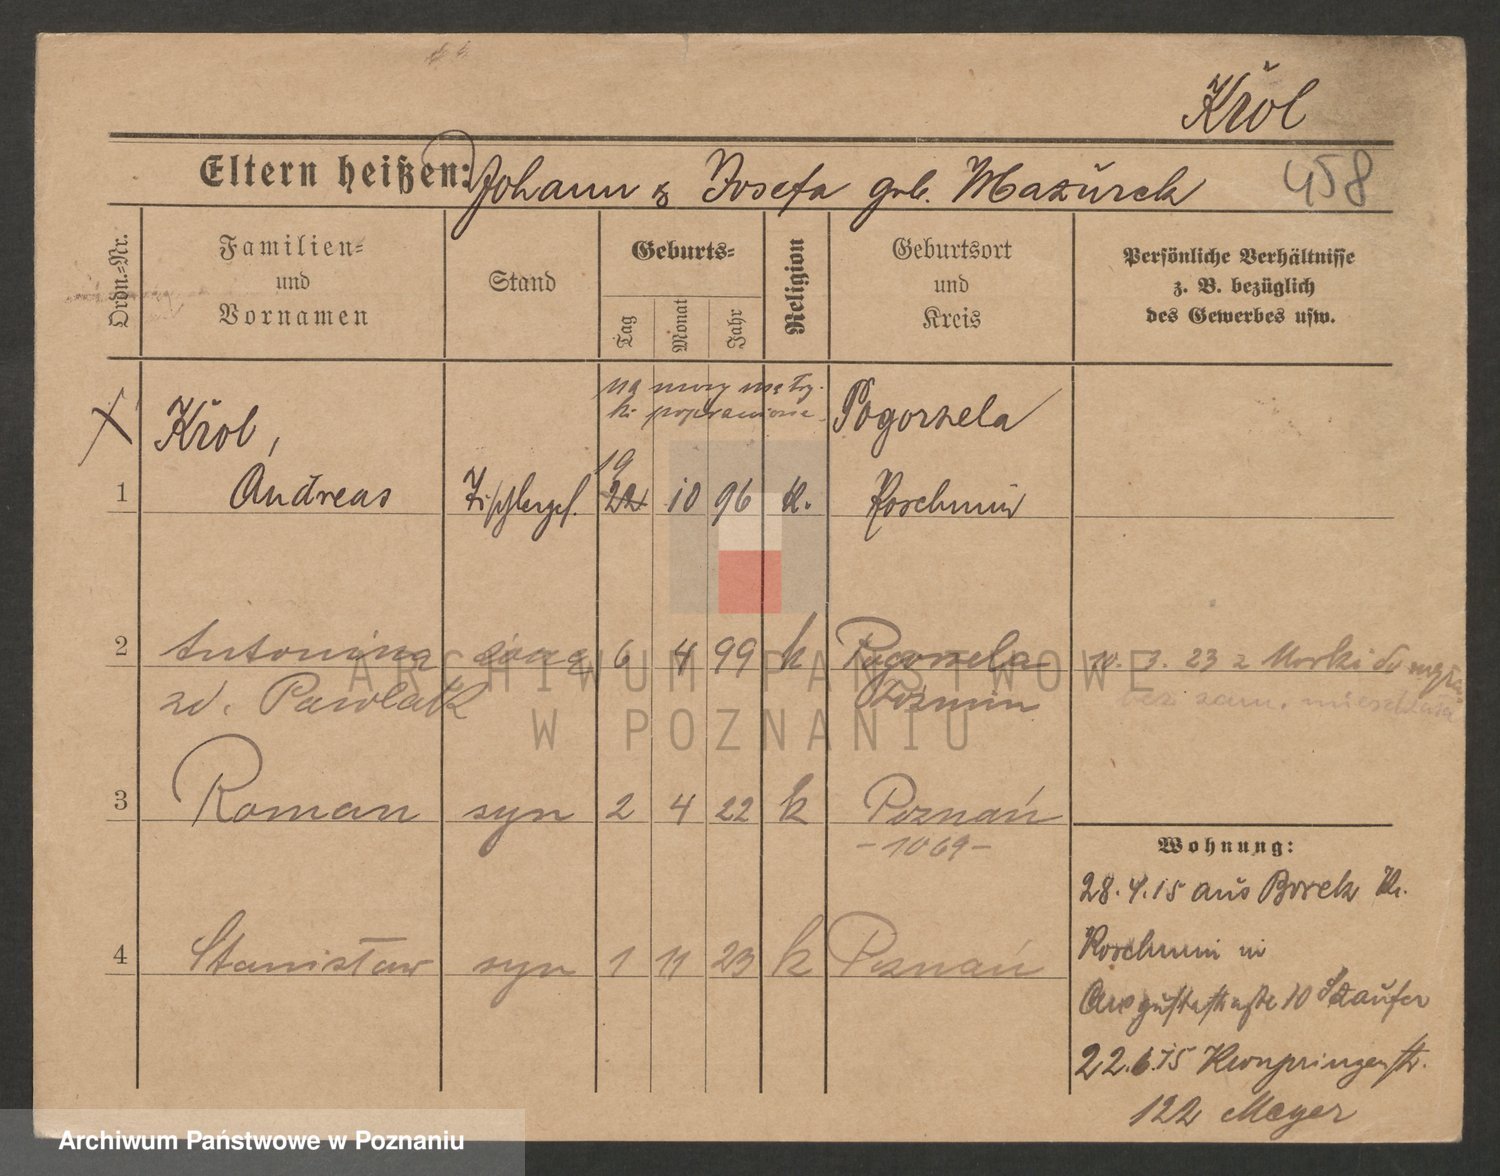 Król
458
Eltern heißen: Johann & Josefa geb. Mazurek
Ordn.-Nr.
Familien-
und
Vornamen
Stand
Geburts-
Tag
Monat
Jahr
Religion
Geburtsort
und
Kreis
Persönliche Verhältnisse
z. B. bezüglich
des Gewerbes usw.
na mocy metry-
ki poprawiono
Król,
Pogorzela
19
1 Andreas Tischlerges. 22 10 96 K. Koschmin
2 Antonina żona 6 4 99 k Pogorzela 10. 3. 23 z Morki do męża
zd. Pawlak Koźmin bez zam. mieszkasa
3 Roman syn 2 4 22 k Poznań
- 1069 -
Wohnung:
28.4.15 aus Borek Kr.
Koschmin in
4 Stanisław syn 1 11 23 k Poznań
Augustastraße 10
22.6.15 Kronprinzenstr.
122 Meyer
ARCHIWUM PAŃSTWOWE
W POZNANIU
Archiwum Państwowe w Poznaniu